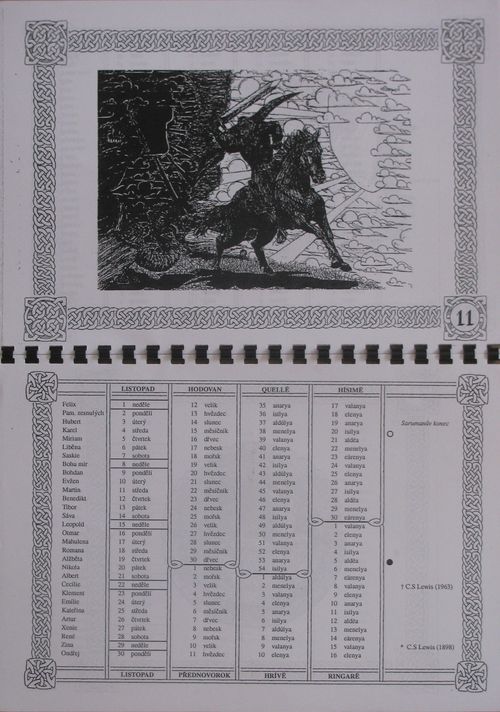 11
LISTOPAD HODOVAN QUELLË HÍSIMË
Felix 1 neděle 12 velik 35 anarya 17 valanya
Pam. zesnulých 2 pondělí 13 hvězdec 36 isilya 18 elenya
Hubert 3 úterý 14 slunec 37 aldúya 19 anarya
Karel 4 středa 15 měsíčník 38 menelya 20 isilya Sarumanův konec
Miriam 5 čtvrtek 16 dřvec 39 valanya 21 aldëa
Liběna 6 pátek 17 nebesk 40 elenya 22 menelya
Saskie 7 sobota 18 mořsk 41 anarya 23 eärenya
Bohumír 8 neděle 19 velik 42 isilya 24 valanya
Bohdan 9 pondělí 20 hvězdec 43 aldúya 25 elenya
Evžen 10 úterý 21 slunec 44 menelya 26 anarya
Martin 11 středa 22 měsíčník 45 valanya 27 isilya
Benedikt 12 čtvrtek 23 dřvec 46 elenya 28 aldëa
Tibor 13 pátek 24 nebesk 47 anarya 29 menelya
Sáva 14 sobota 25 mořsk 48 isilya 30 eärenya
Leopold 15 neděle 26 velik 49 aldúya 1 valanya
Otmar 16 pondělí 27 hvězdec 50 menelya 2 elenya
Mahulena 17 úterý 28 slunec 51 valanya 3 anarya
Romana 18 středa 29 měsíčník 52 elenya 4 isilya
Alžběta 19 čtvrtek 30 dřvec 53 anarya 5 aldëa
Nikola 20 pátek 1 nebesk 54 isilya 6 menelya
Albert 21 sobota 2 mořsk 1 aldúya 7 eärenya
Cecílie 22 neděle 3 velik 2 menelya 8 valanya † C.S Lewis (1963)
Klement 23 pondělí 4 hvězdec 3 valanya 9 elenya
Emílie 24 úterý 5 slunec 4 elenya 10 anarya
Kateřina 25 středa 6 měsíčník 5 anarya 11 isilya
Artur 26 čtvrtek 7 dřvec 6 isilya 12 aldëa
Xenie 27 pátek 8 nebesk 7 aldúya 13 menelya
René 28 sobota 9 mořsk 8 menelya 14 eärenya
Zina 29 neděle 10 velik 9 valanya 15 valanya * C.S Lewis (1898)
Ondřej 30 pondělí 11 hvězdec 10 elenya 16 elenya
LISTOPAD PŘEDNOVOROK HRÍVË RINGARË